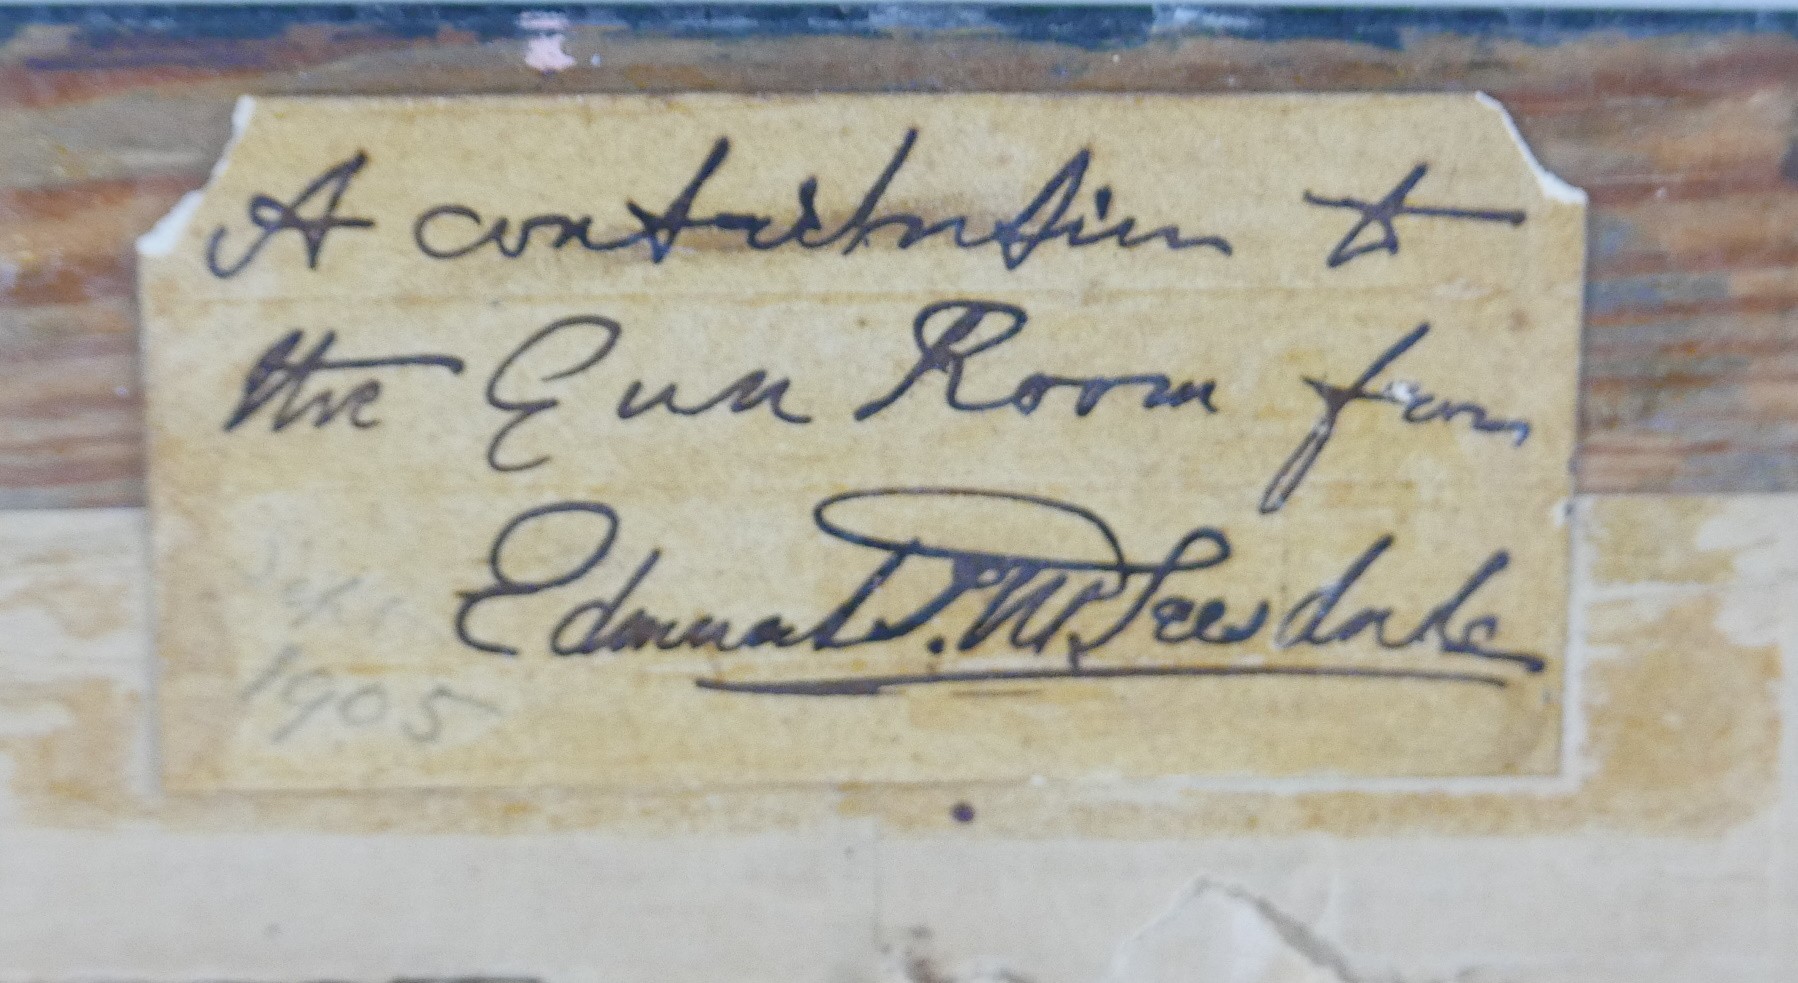 A contribution to
the Gun Room from
Edmund. W. Teesdale
Sept
1905